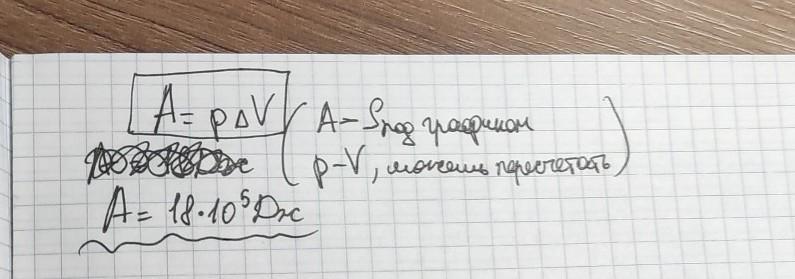 A = pΔV (A – Sпод графиком
p–V, можешь пересчетать)
A = 18·10⁵ Дж